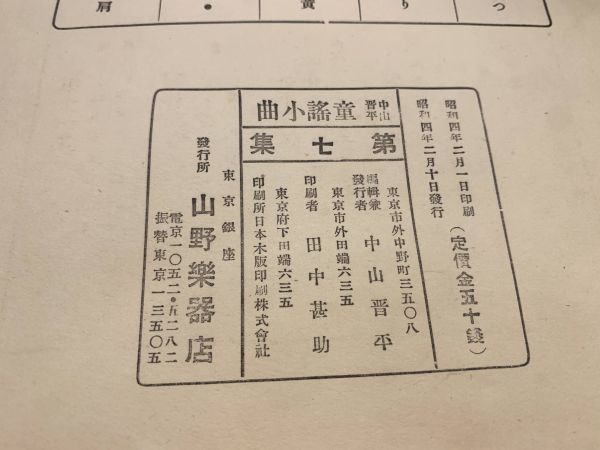 つ
り
黄
・
肩
昭和四年二月一日印刷
昭和四年二月十日發行
(定價金五十錢)
中山晋平 童謠小曲
第七集
東京市外中野町三五〇八
編輯兼發行者 中山晋平
東京市外田端六三五
印刷者 田中甚助
東京府下田端六三五
印刷所 日本木版印刷株式會社
東京銀座
發行所 山野樂器店
電京一〇五二・五二八二
振替東京一三五〇五